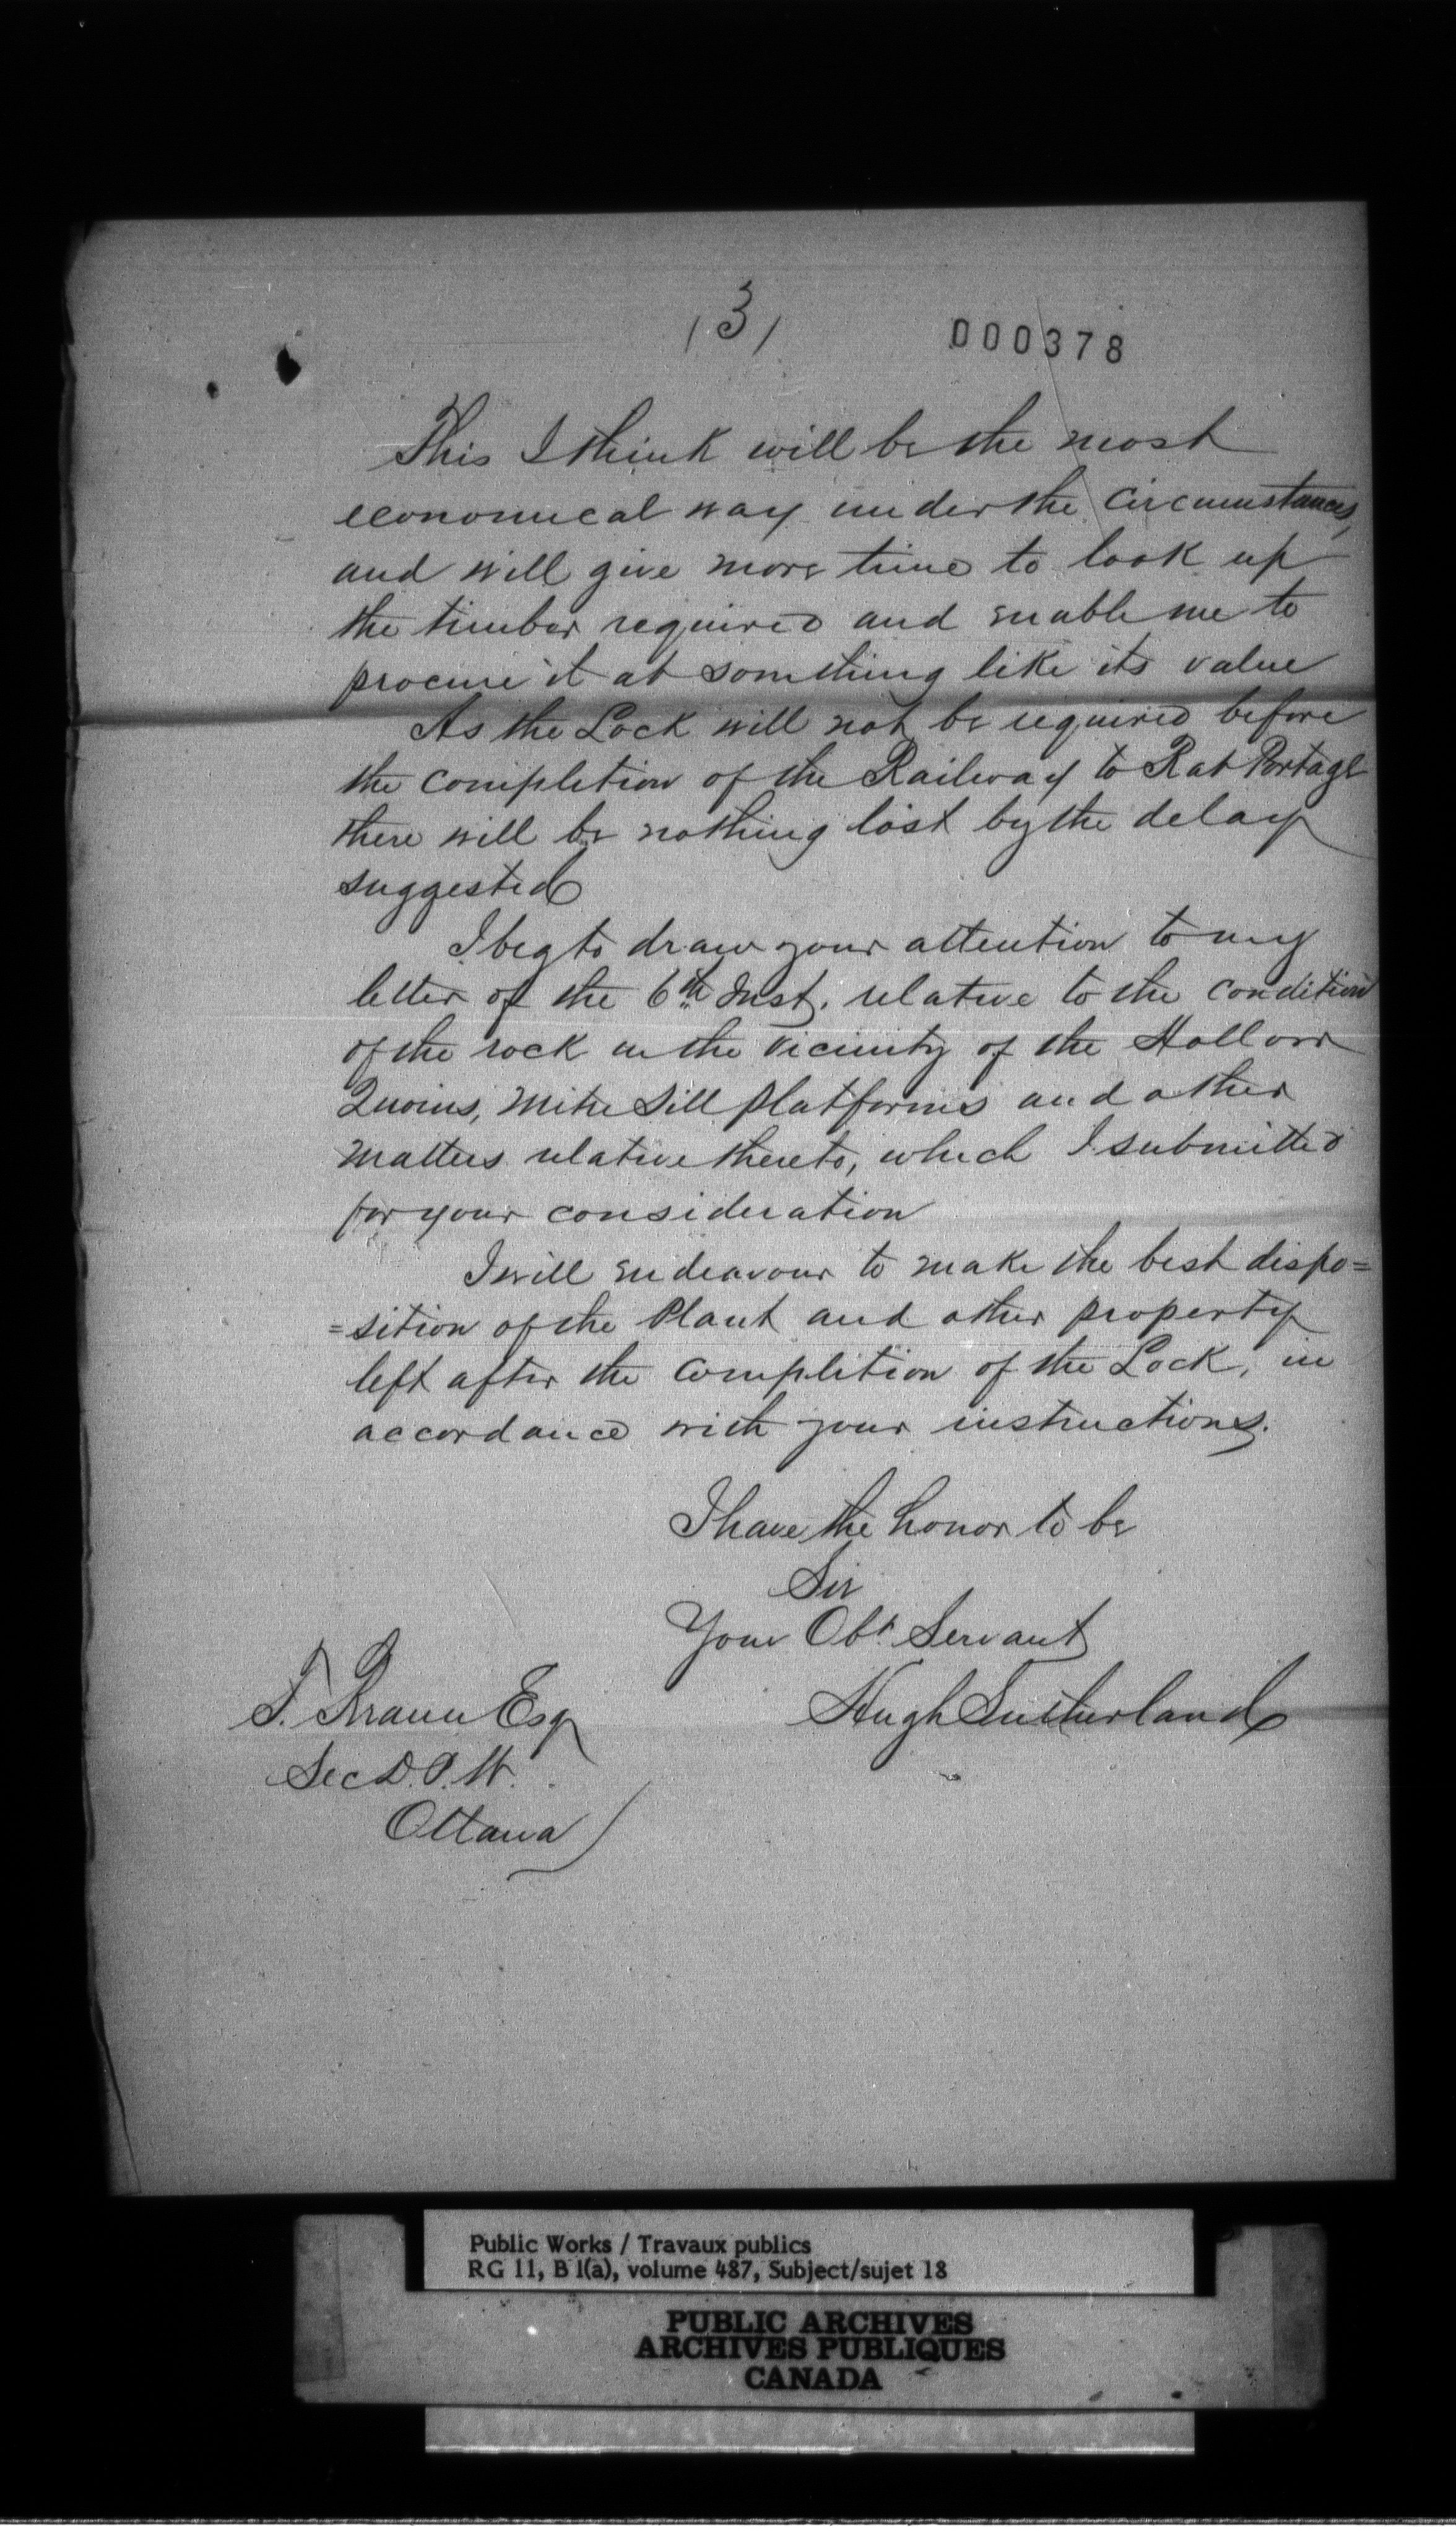 (3)
000378
This I think will be the most
economical way under the circumstances,
and will give more time to look up
the timber required and enable me to
procure it at something like its value
As the Lock will not be required before
the completion of the Railway to Rat Portage
there will be nothing lost by the delay
suggested
I beg to draw your attention to my
letter of the 6th Inst. relative to the condition
of the rock in the vicinity of the Hollow
Quoins, Mitre Sill platforms and other
matters relative thereto, which I submitted
for your consideration
I will endeavour to make the best dispo=
=sition of the Plant and other property
left after the completion of the Lock, in
accordance with your instructions.
I have the honor to be
Sir
Your Obt. Servant
Hugh Sutherland
F. Braun Esq
Sec D.P.W.
Ottawa
Public Works / Travaux publics
RG 11, B 1(a), volume 487, Subject/sujet 18
PUBLIC ARCHIVES
ARCHIVES PUBLIQUES
CANADA